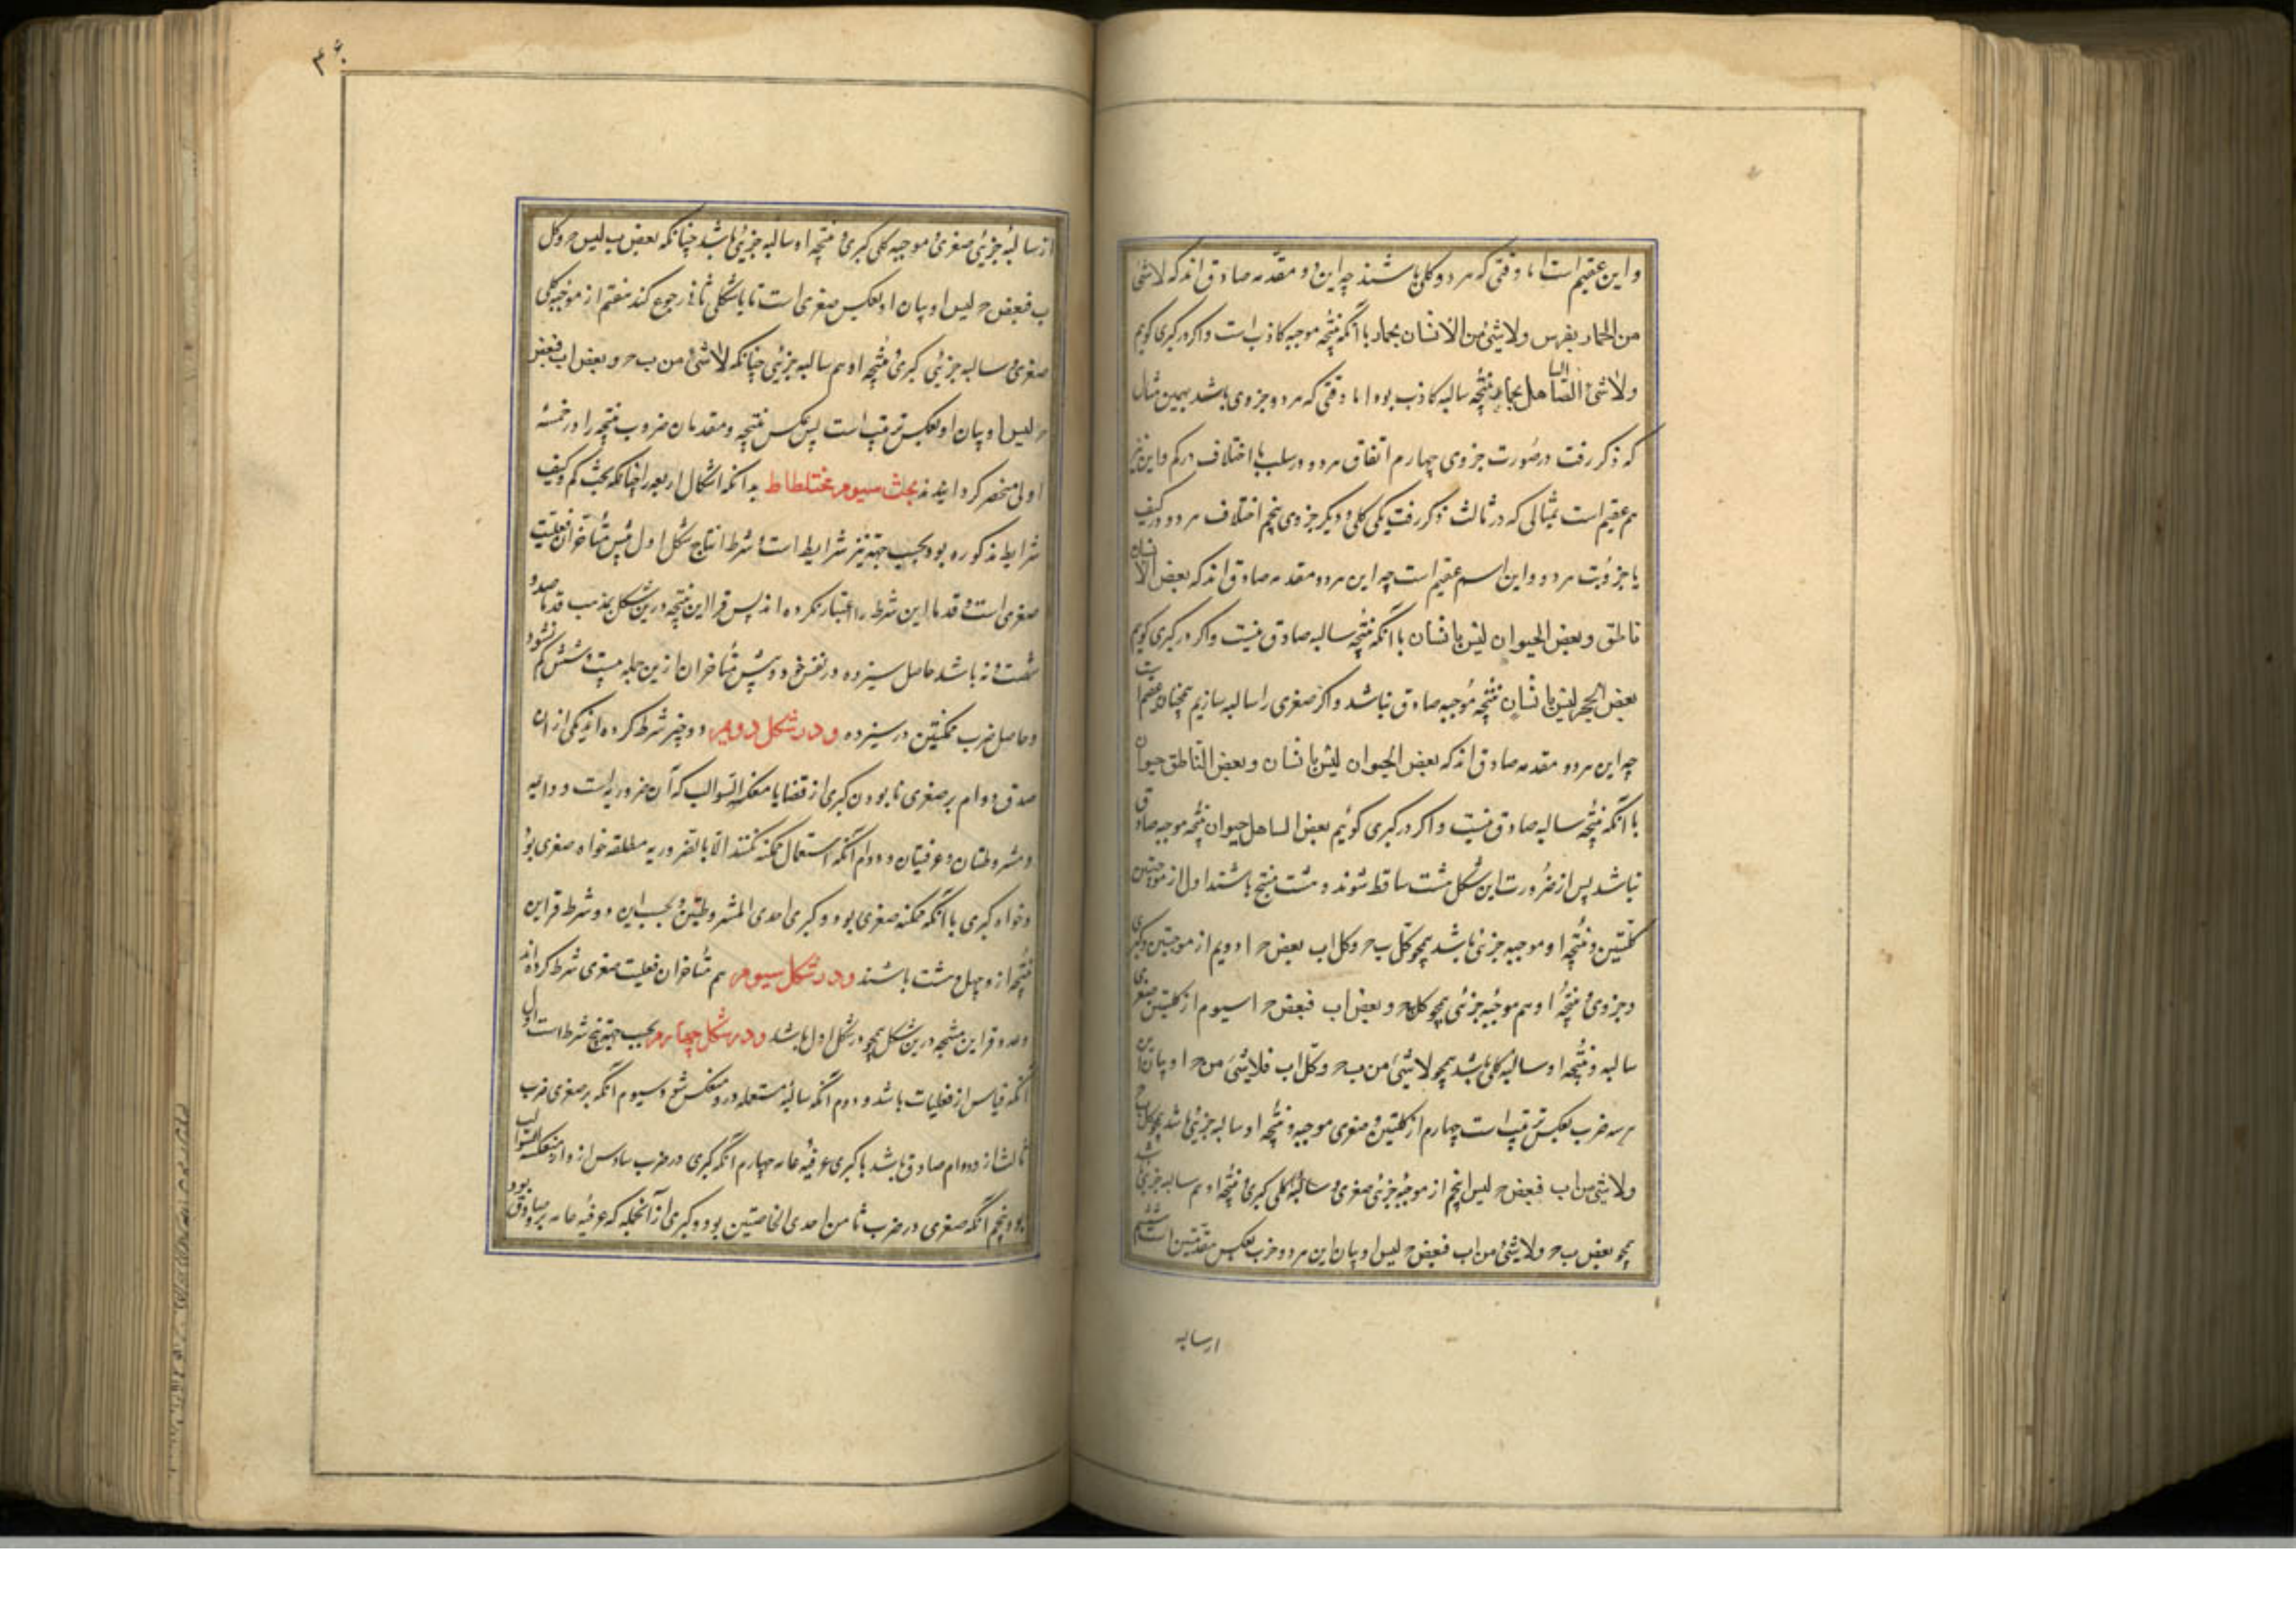 و این عقیم است اما وقتی که هر دو کلی باشند چه این دو مقدمه صادق اند که لاشئ
من الحمار بفرس ولاشئ من الانسان بحمار با آنکه نتیجه موجبه کاذب است واکر در کبری کویم
ولاشئ الصاهل بحمار نتیجه سالبه کاذب بود اما وقتی که هر دو جزوی باشد بهمین مثال
که ذکر رفت در صورت جزوی چهارم اتفاق هر دو در سلب با اختلاف در کم و این نیز
هم عقیم است بمثالی که در ثالث ذکر رفت یکی کلی و دیکر جزوی پنجم اختلاف هر دو در کیف
با جزویت هر دو و این اسم عقیم است چه این هر دو مقدمه صادق اند که بعض الانسان
ناطق وبعض الحیوان لیس بانسان با آنکه نتیجه سالبه صادق نیست واکر در کبری کویم
بعض الحجر لیس بانسان نتیجه موجبه صادق نباشد واکر صغری را سالبه سازیم همچنان عقیم است
چه این هر دو مقدمه صادق اند که بعض الحیوان لیس بانسان وبعض الناطق حیوان
با آنکه نتیجه سالبه صادق نیست واکر در کبری کوئیم بعض الساهل حیوان نتیجه موجبه صادق
نباشد پس از ضرورت این شکل هشت ساقط شوند و هشت منتج باشند اول از موجبتین
کلیتین و نتیجه او موجبه جزئی باشد همچو کل ب ح وکل اب بعض ح ا دویم از موجبتین وکبری
جزوی و نتیجه او هم موجبه جزئی همچو کل ب ح وبعض اب فبعض ح ا سیوم از کلیتین صغری
سالبه و نتیجه او سالبه کلی باشد همچو لاشئ من ب ح وکل اب فلاشئ من ح ا و بیان این
هر سه ضرب بعکس ترتیب است چهارم از کلیتین و صغری موجبه و نتیجه او سالبه جزئی باشد همچو کل ب ح
ولاشئ من اب فبعض ح لیس ا پنجم از موجبه جزئی صغری و سالبه کلی کبری و نتیجه او هم سالبه جزئی باشد
همچو بعض ب ح ولاشئ من اب فبعض ح لیس ا و بیان این هر دو ضرب بعکس مقدمتین است ششم
ارسالبه
۴۶۰
از سالبه جزئی صغری و موجبه کلی کبری و نتیجه او سالبه جزئی باشد چنانکه بعض ب لیس ح وکل
اب فبعض ح لیس ا و بیان او بعکس صغری است تا با شکل ثانی رجوع کند هفتم از موجبه کلی
صغری و سالبه جزئی کبری و نتیجه او هم سالبه جزئی چنانکه لاشئ من ب ح وبعض اب فبعض
ح لیس ا و بیان او بعکس ترتیب است پس عکس نتیجه و مقدمان ضروب منتجه را در خمسه
اولی منحصر کردانیدند بحث سیوم مختلطات بدانکه اشکال اربعه را چنانکه بحسب کم وکیف
شرایط مذکوره بود بحسب جهة نیز شرایط است و شرط انتاج شکل اول پیش متأخران فعلیت
صغری است و قدما این شرط را اعتبار نکرده اند پس قراین منتجه درین شکل بمذهب قدما صد و
شصت و نه باشد حاصل سیزده در نفس خود و پیش متأخران ازین جمله بیست و شش کم شود
و حاصل ضرب ممکنتین در سیزده و در شکل دویم دو چیز شرط کرده اند یکی از ان
صدق دوام بر صغری یا بودن کبری از قضایا منعکسة السوالب که آن ضروریه است و دائمه
و مشروطتان و عرفیتان و دوم آنکه استعمال ممکنه نکنند الا با لضروریه مطلقه خواه صغری بود
وخواه کبری یا آنکه ممکنه صغری بود و کبری احدی المشروطتین و بحسب این دو شرط قراین
منتجه از و چهل و هشت باشند و در شکل سیوم هم متأخران فعلیت صغری شرط کرده اند
وعدد قراین منتجه درین شکل همچو در شکل اول باشد و در شکل چهارم بحسب جهة پنج شرط است اول
آنکه قیاس از فعلیات باشد و دوم آنکه سالبه مستعمله در و منعکس شود و سیوم آنکه بر صغری ضرب
ثالث از و دوام صادق باشد یا کبری عرفیه عامه چهارم آنکه کبری در ضرب سادس از و از منعکسة السوالب
بود و پنجم آنکه صغری در ضرب ثامن احدی الخاصتین بود و کبری از آنجمله که عرفیه عامه برو صادق بود